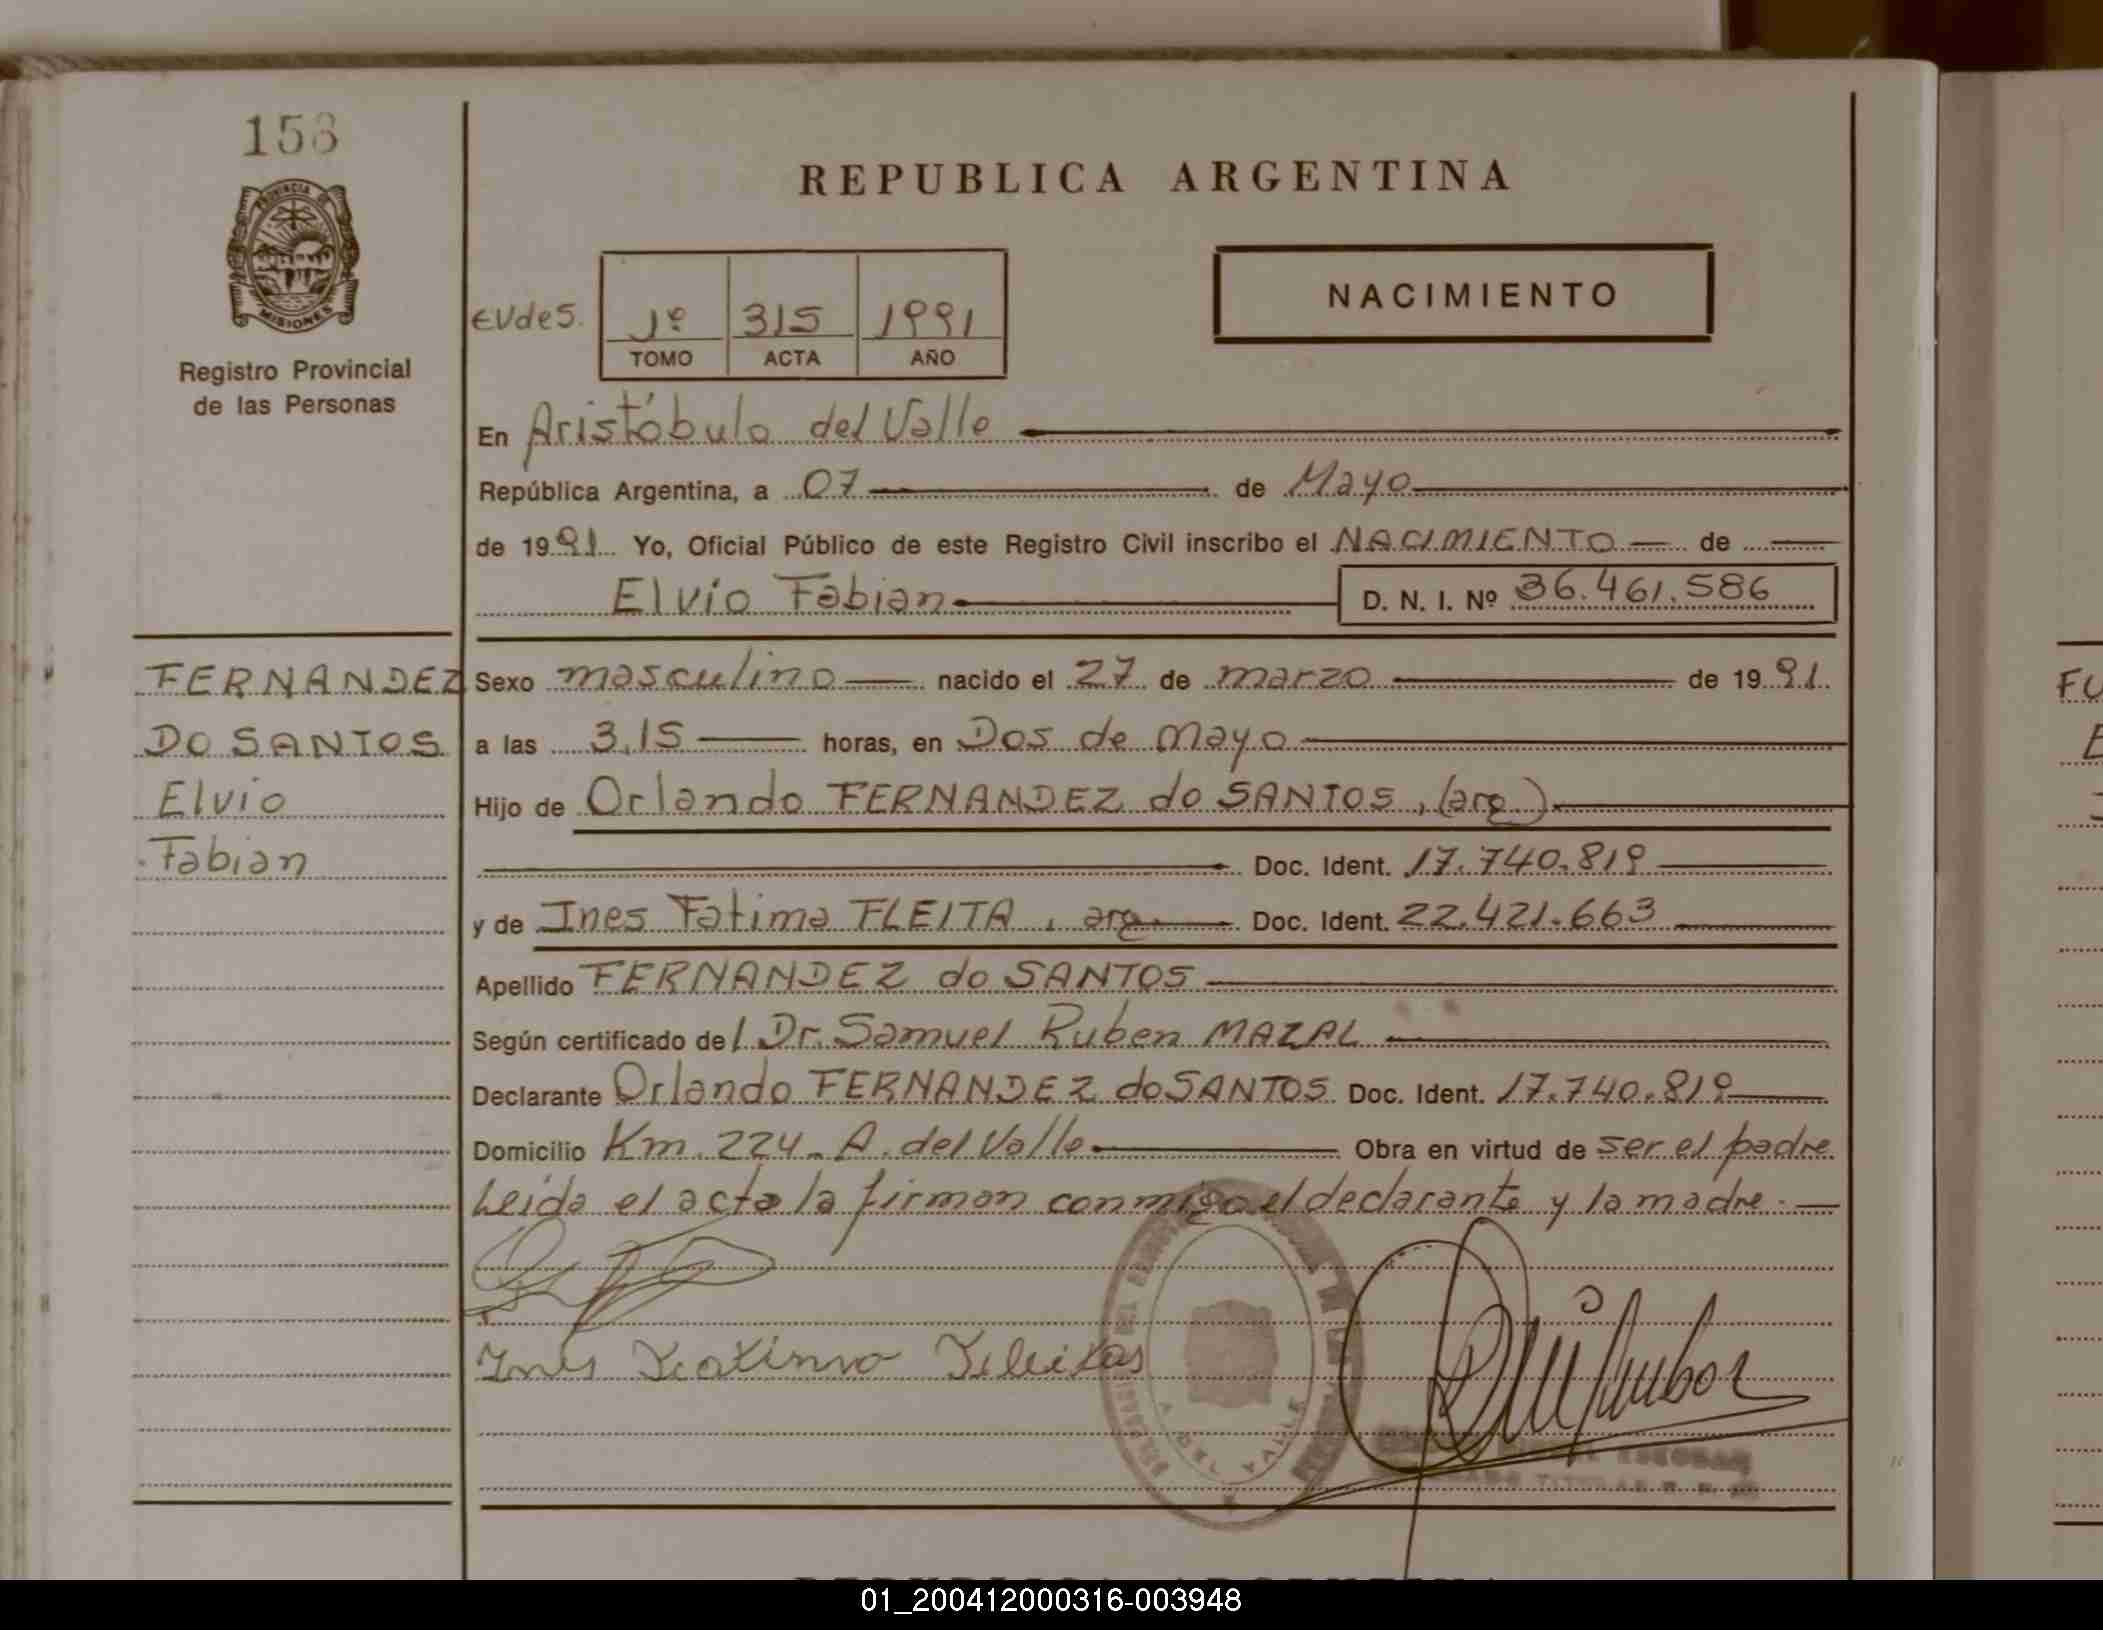 158
PROVINCIA DE
MISIONES
Registro Provincial
de las Personas
REPUBLICA ARGENTINA
NACIMIENTO
EVdeS. 1º 315 1991
TOMO ACTA AÑO
En Aristóbulo del Valle
República Argentina, a 07 de Mayo
de 1991 Yo, Oficial Público de este Registro Civil inscribo el NACIMIENTO de
Elvio Fabian D. N. I. Nº 36.461.586
FERNANDEZ
DO SANTOS
Elvio
Fabian
Sexo masculino nacido el 27 de marzo de 1991.
a las 3,15 horas, en Dos de Mayo
Hijo de Orlando FERNANDEZ do SANTOS, (arg.)
Doc. Ident. 17.740.819
y de Ines Fatima FLEITA, arg. Doc. Ident. 22.421.663
Apellido FERNANDEZ do SANTOS
Según certificado del Dr. Samuel Ruben MAZAL
Declarante Orlando FERNANDEZ do SANTOS Doc. Ident. 17.740.819
Domicilio Km. 224 - A. del Valle Obra en virtud de ser el padre
Leida el acta la firman conmigo el declarante y la madre.
Ines
A. DEL VALLE
REPUBLICA ARGENTINA
FU
01_200412000316-003948